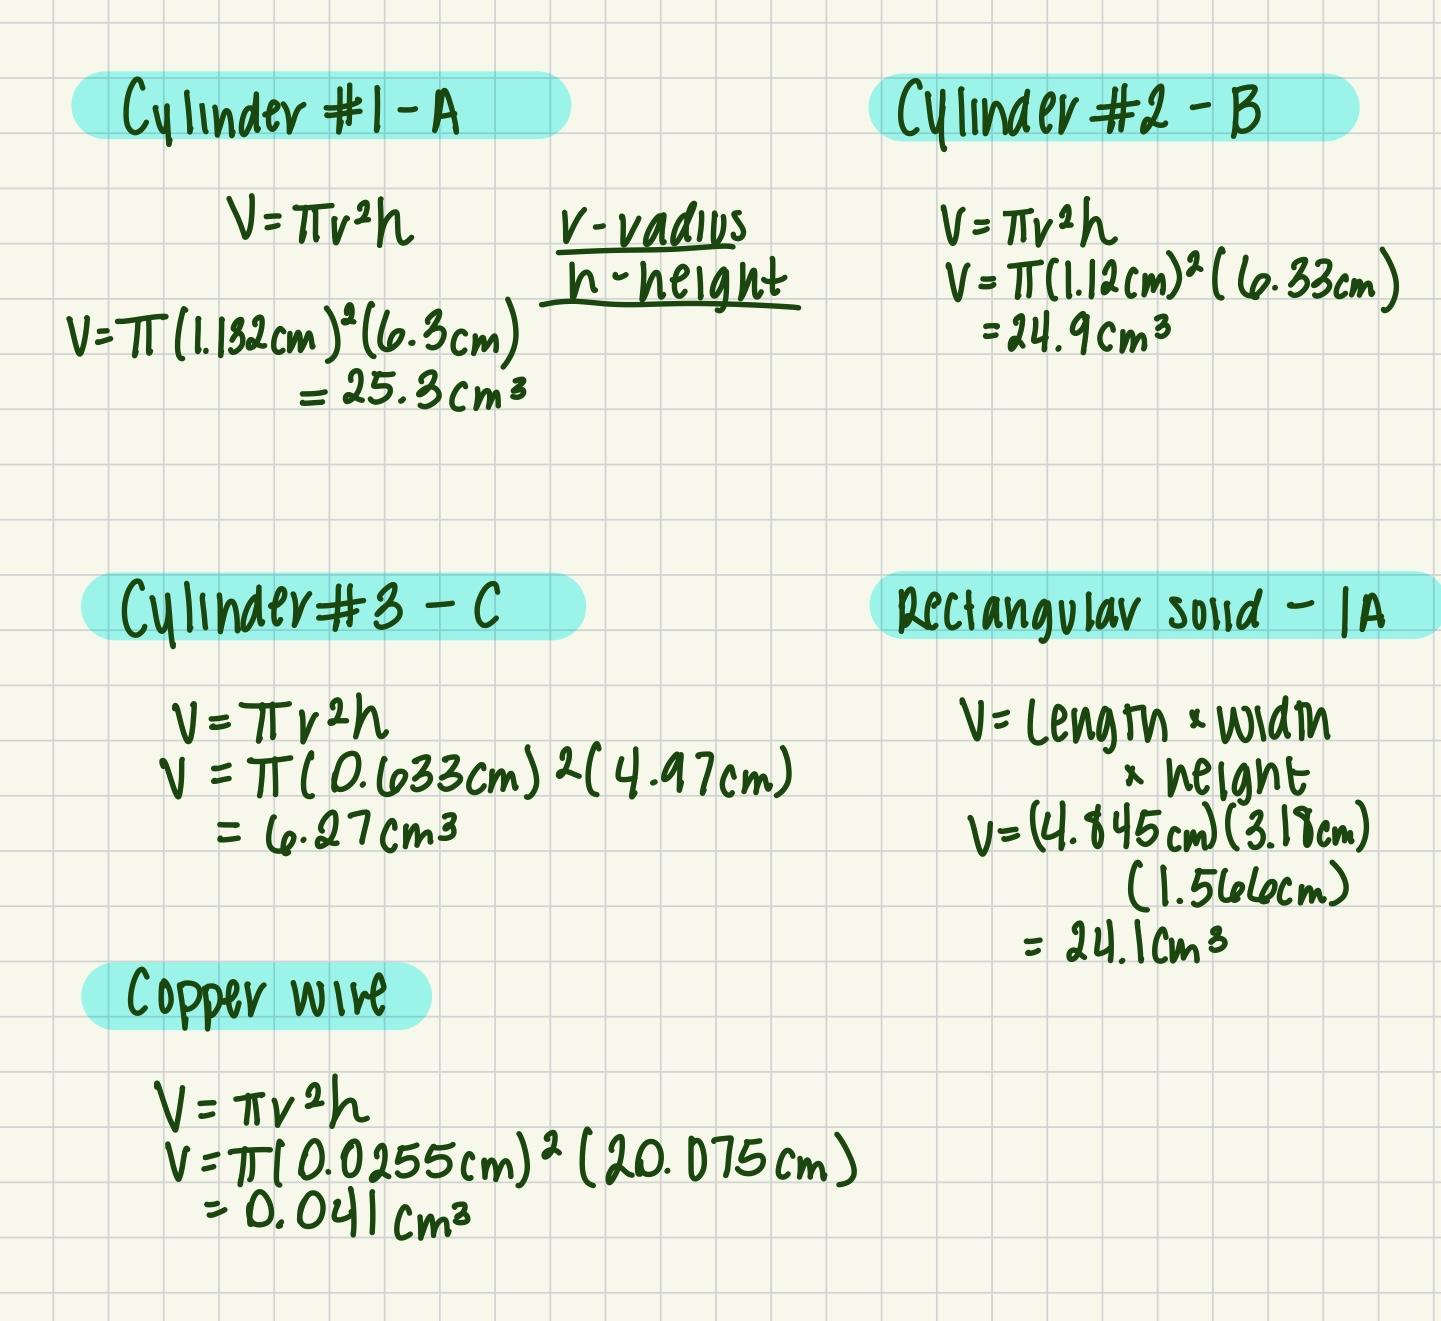 Cylinder #1 - A
V = πr²h
r - radius
h - height
V = π(1.132cm)²(6.3cm)
= 25.3cm³
Cylinder #2 - B
V = πr²h
V = π(1.12cm)²(6.33cm)
= 24.9cm³
Cylinder #3 - C
V = πr²h
V = π(0.633cm)²(4.97cm)
= 6.27cm³
Rectangular solid - 1A
V = Length × width
× height
V = (4.845cm)(3.18cm)
(1.566cm)
= 24.1cm³
Copper wire
V = πr²h
V = π(0.0255cm)²(20.075cm)
= 0.041cm³